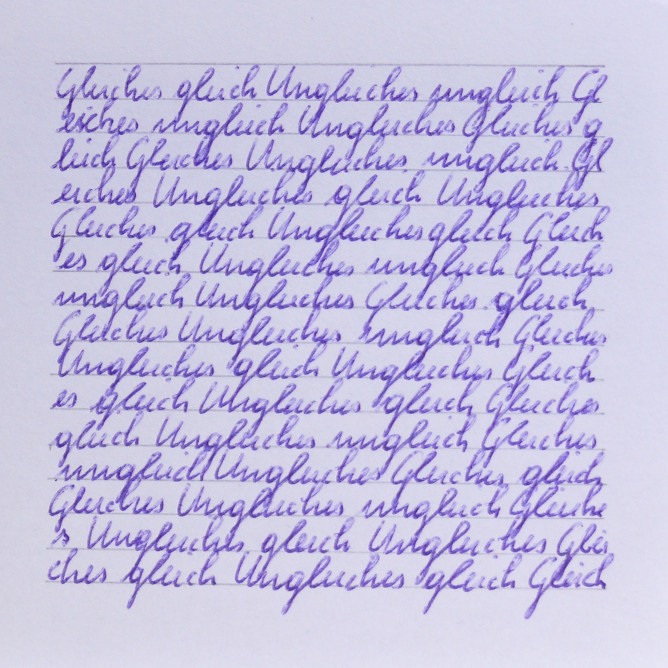 Gleiches gleich Ungleiches ungleich Gl
eiches ungleich Ungleiches Gleiches g
leich Gleiches Ungleiches ungleich Gl
eiches Ungleiches gleich Ungleiches
Gleiches gleich Ungleiches gleich Gleich
es gleich Ungleiches ungleich Gleiches
ungleich Ungleiches Gleiches gleich
Gleiches Ungleiches ungleich Gleiches
Ungleiches gleich Ungleiches Gleich
es gleich Ungleiches gleich Gleiches
gleich Ungleiches ungleich Gleiches
ungleich Ungleiches Gleiches gleich
Gleiches Ungleiches ungleich Gleiche
s Ungleiches gleich Ungleiches Glei
ches gleich Ungleiches gleich Gleich